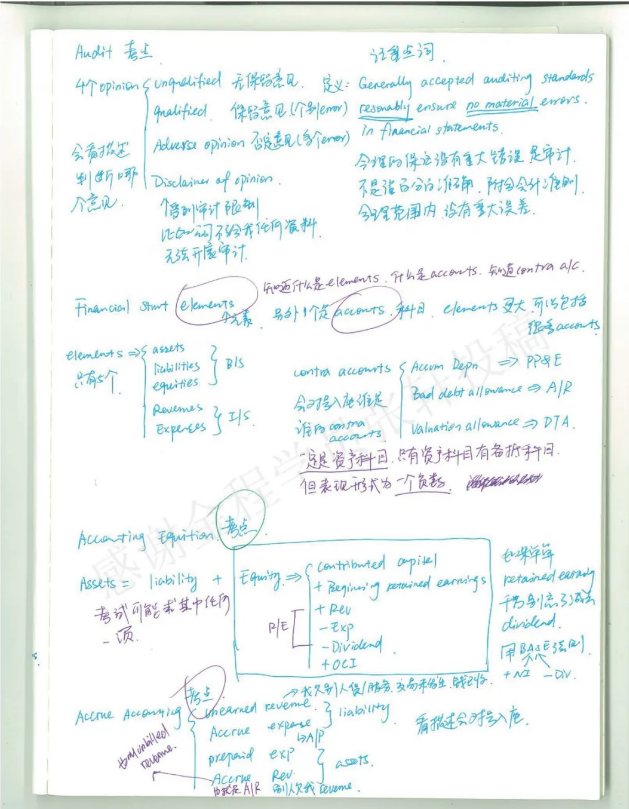 Audit 考点
注意点词
4个opinion
unqualified 无保留意见
qualified 保留意见(个别error)
Adverse opinion 否定意见(多个error)
Disclaimer of opinion
会看描述
判断哪
个意见
收到审计限制
比如公司不给我任何资料
无法开展审计
定义: Generally accepted auditing standards
resonably ensure no material errors
in financial statements.
合理的保证没有重大错误是审计
不是说百分百准确,附合会计准则
合理范围内没有重大误差.
知道什么是elements,什么是accounts,知道contra a/c.
Financial stmt elements 另外1个是 accounts 科目. elements更大,可以包括
个元素
很多accounts
elements ⇒
只有5个
assets
liabilities
equities
B/S
Revenues
Expenses
I/S
contra accounts
会对号入座谁是
谁的contra
accounts
Accum Depn ⇒ PP&E
Bad debt allowance ⇒ A/R
Valuation allowance ⇒ DTA.
一定是资产科目,只有资产科目有备抵科目.
但表现形式为一个负数.
感谢金程学员张轩投稿
Accounting Equition. 考点
Assets = liability + Equity ⇒
考试可能求其中任何
一项.
contributed capitel
+ Beginning retained earnings
+ Rev
- Exp
- Dividend
+ OCI
R/E
如果单算
retained earning
千万别忘了减去
dividend.
用BASE法则.
+ NI - DIV.
Accrue Accounting 考点
unearned revenue.
→ 我欠别人货/服务,交易未发生,钱已收
Accrue expense
↳ A/P
liability.
prepaid exp
Accrue Rev.
assets.
也叫unbilled
revenue.
也就是A/R 别人欠我revenue.
看描述会对号入座.